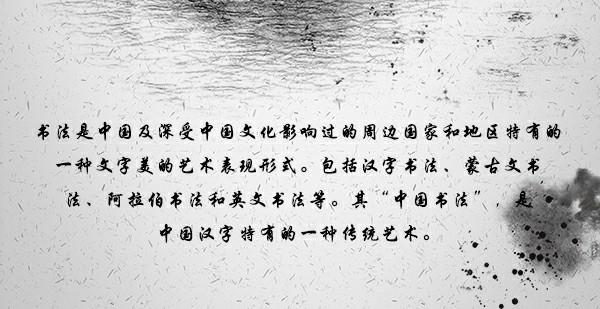 书法是中国及深受中国文化影响过的周边国家和地区特有的
一种文字美的艺术表现形式。包括汉字书法、蒙古文书
法、阿拉伯书法和英文书法等。其“中国书法”，是
中国汉字特有的一种传统艺术。